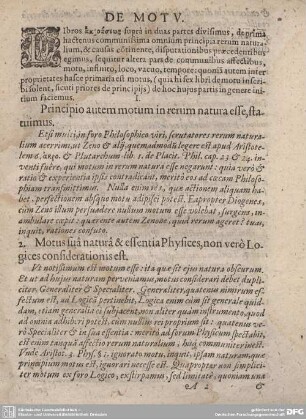 DE MOTV.
in duas partes divisimus, de prima
hactenus communissima omnium principia rerum natura-
lium, & causas continente, disputationibus præcedentibus
egimus, sequitur altera pars de communibus affectibus,
motu, infinito, loco, vacuo, tempore: quonia autem inter
proprietates hasce primaria est motus,
de hoc hujus partis in generi ini-
tium faciemus. I.
Principio autem motum in rerum natura esse, sta-
tuimus.
Etsi multi in foro Philosophico viri, scrutatores rerum natura-
lium acerrimi, ut Zeno & alij quemadmodũ legere est apud Aristote-
lem & Plutarchum lib. 1. de Placit. Phil. cap. 23 & 24.
inventi fuere, qui motum in rerum natura esse negarunt: quia verò & ra-
tio & experientia ipsis contradicit, meritò eos ad cacam Philoso-
phiam transmittimus. Nulla enim res, quæ actionem aliquam ha-
bet, perfectionem absque motu adipisci potest. Eapropter Diogenes,
cum Zeno illum persuadere nullum motum esse volebat, surgens, in-
ambulare cœpit quærente autem Zenone, quid rerum ageret? tuas,
inquit, rationes confuto.
2. Motus suâ naturâ & essentia Physices, non verò Lo-
gices considerationis est.
Ut notissimum est motum esse: ita quæ sit ejus natura obscurum.
Et ut ad hujus naturam perveniamus, motus considerari debet dupli-
citer, Generaliter & Specialiter. Generaliter, quatenus nimirum ef-
fectum est, ad Logicã pertinebit, Logica enim cum sit generale quid-
dam, etiam generalia ei subjacent, non aliter quàm instrumento, quod
ad omnia adhiberi potest, cum nullius rei proprium sit: quatenus ve-
rò Specialiter & in sua essentia: meritò ad forum Physicum spectabit,
est enim tanquã affectio rerum naturalium, huic communiter inest.
Unde Aristot. 3. Phys. ignorato motu, inquit, ipsam naturam quæ
principium motus est, ignorari necesse est. Quapropter non simplici-
ter motum ex foro Logico, exstirpamus, sed limitatè, quoniam una
A 2